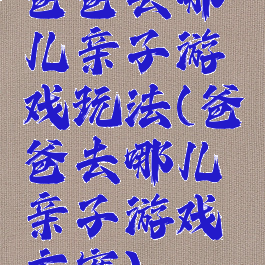 爸爸去哪
儿亲子游
戏玩法(爸
爸去哪儿
亲子游戏